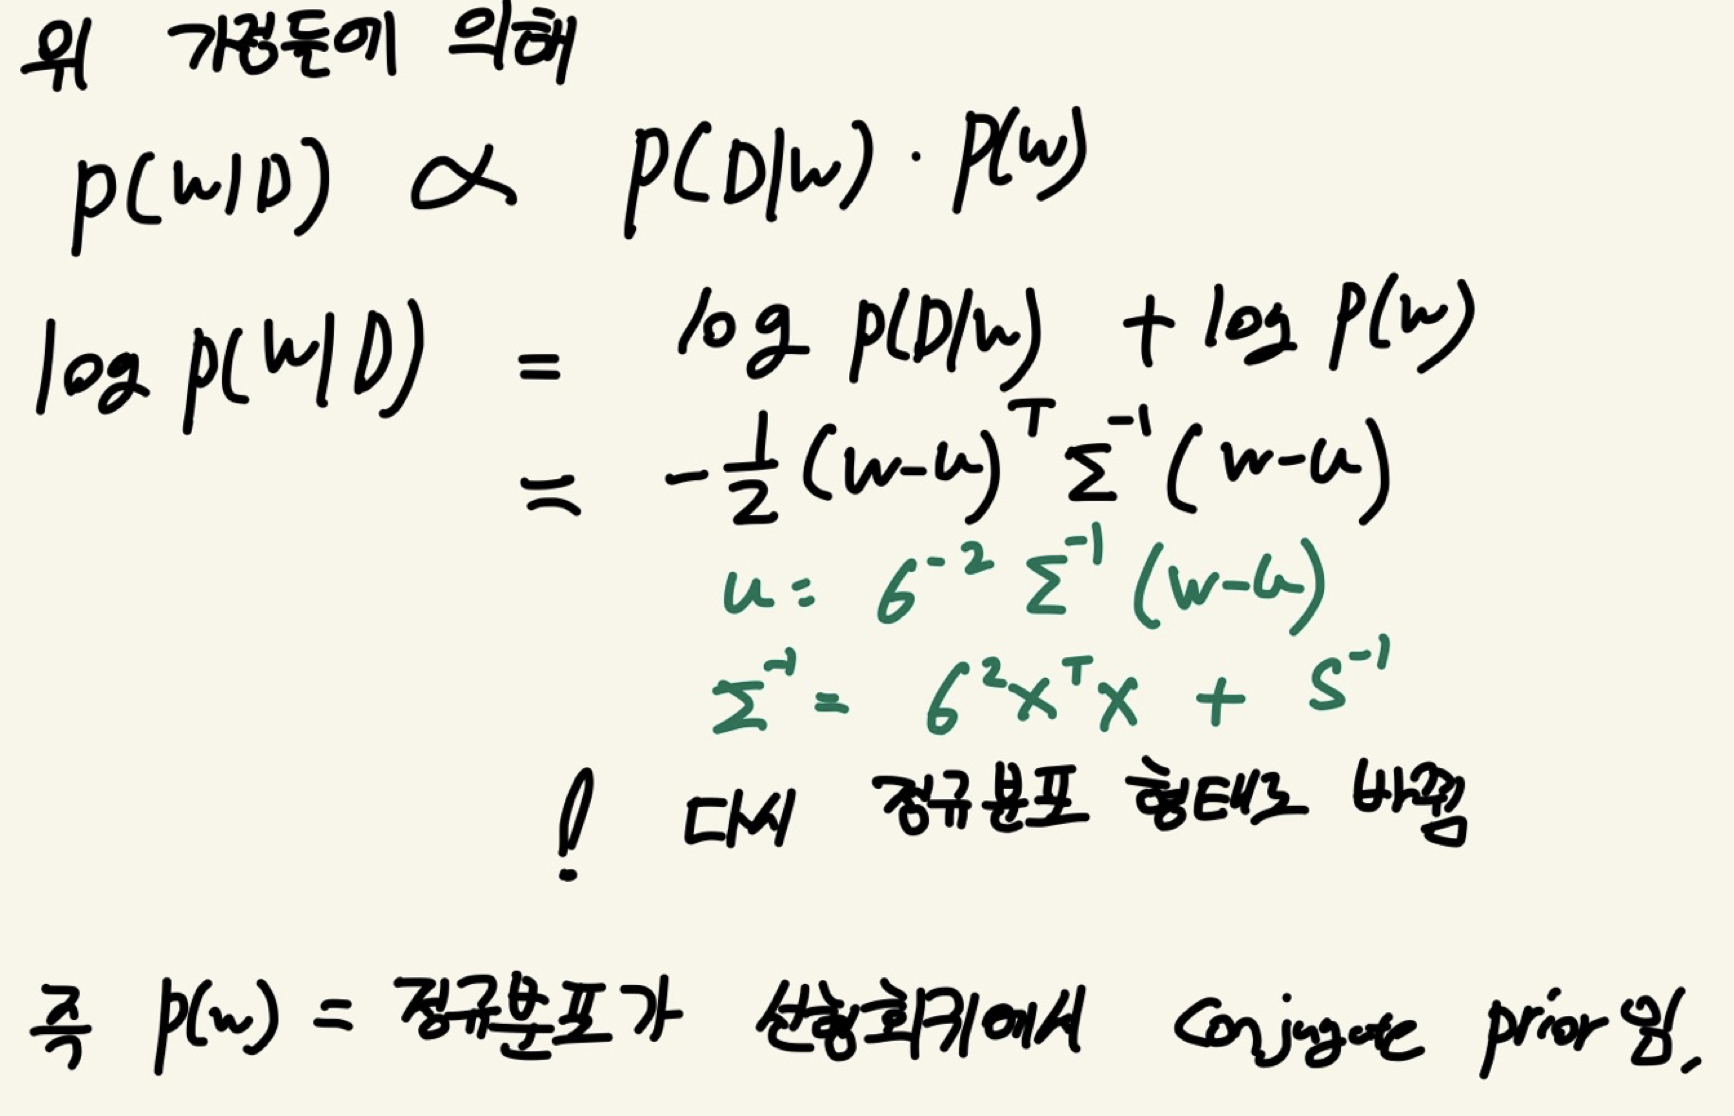 위 가정들에 의해
p(w|D) ∝ p(D|w) · p(w)
log p(w|D) = log p(D|w) + log p(w)
= -1/2 (w-u)ᵀ Σ⁻¹ (w-u)
u = 6⁻² Σ⁻¹ (w-u)
Σ⁻¹ = 6² xᵀx + S⁻¹
! 다시 정규분포 형태로 바뀜
즉 p(w) = 정규분포가 선형회귀에서 conjugate prior임.